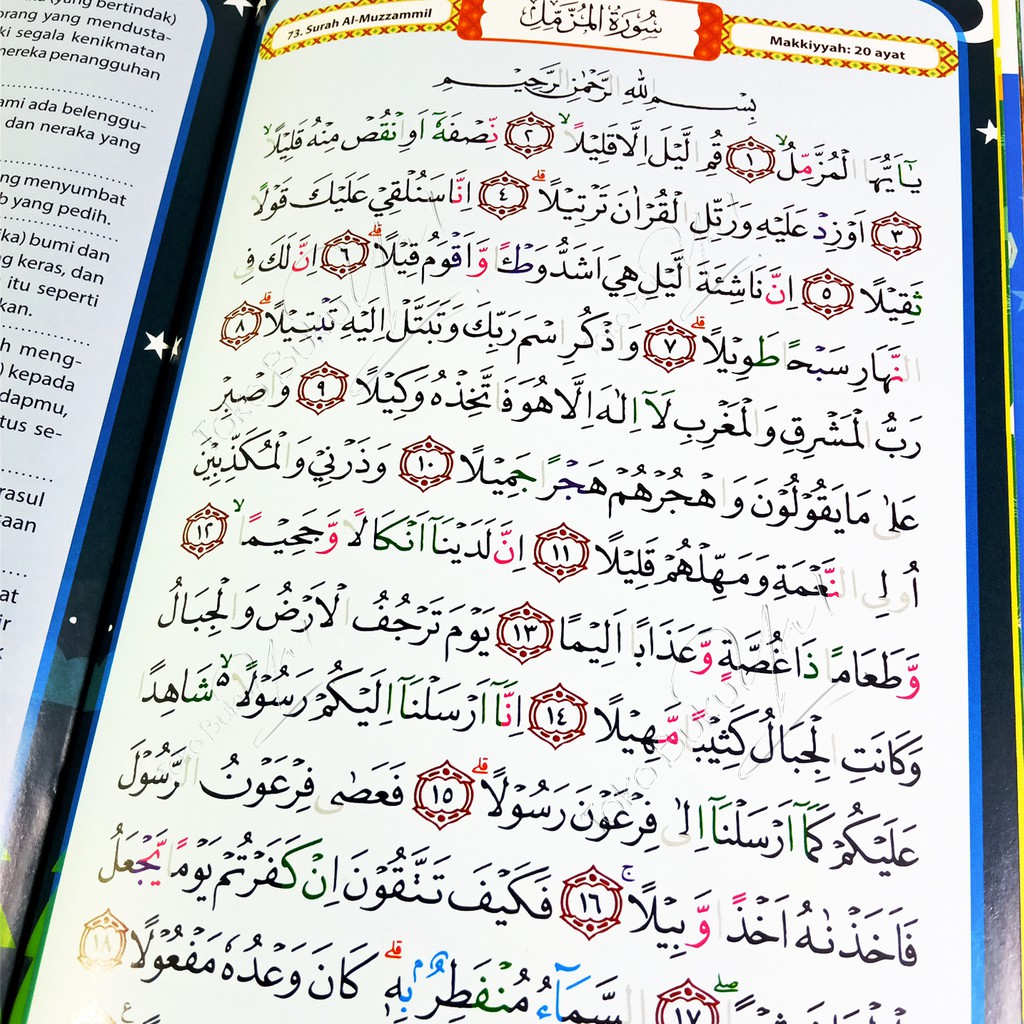 (yang bertindak)
orang yang mendusta-
ki segala kenikmatan
mereka penangguhan
ami ada belenggu-
dan neraka yang
ng menyumbat
b yang pedih.
ika) bumi dan
ng keras, dan
itu seperti
kan.
h meng-
) kepada
dapmu,
tus se-
rasul
saan
at
ir
73. Surah Al-Muzzammil
سُوْرَةُ الْمُزَّمِّلِ
Makkiyyah: 20 ayat
بِسْمِ اللّٰهِ الرَّحْمٰنِ الرَّحِيْمِ
يٰٓاَيُّهَا الْمُزَّمِّلُۙ ١ قُمِ الَّيْلَ اِلَّا قَلِيْلًاۙ ٢ نِّصْفَهٗٓ اَوِ انْقُصْ مِنْهُ قَلِيْلًاۙ
٣ اَوْ زِدْ عَلَيْهِ وَرَتِّلِ الْقُرْاٰنَ تَرْتِيْلًاۗ ٤ اِنَّا سَنُلْقِيْ عَلَيْكَ قَوْلًا
ثَقِيْلًا ٥ اِنَّ نَاشِئَةَ الَّيْلِ هِيَ اَشَدُّ وَطْـًٔا وَّاَقْوَمُ قِيْلًاۗ ٦ اِنَّ لَكَ فِى
النَّهَارِ سَبْحًا طَوِيْلًاۗ ٧ وَاذْكُرِ اسْمَ رَبِّكَ وَتَبَتَّلْ اِلَيْهِ تَبْتِيْلًاۗ ٨
رَبُّ الْمَشْرِقِ وَالْمَغْرِبِ لَآ اِلٰهَ اِلَّا هُوَ فَاتَّخِذْهُ وَكِيْلًا ٩ وَاصْبِرْ
عَلٰى مَا يَقُوْلُوْنَ وَاهْجُرْهُمْ هَجْرًا جَمِيْلًا ١٠ وَذَرْنِيْ وَالْمُكَذِّبِيْنَ
اُولِى النَّعْمَةِ وَمَهِّلْهُمْ قَلِيْلًا ١١ اِنَّ لَدَيْنَآ اَنْكَالًا وَّجَحِيْمًاۙ ١٢
وَّطَعَامًا ذَا غُصَّةٍ وَّعَذَابًا اَلِيْمًا ١٣ يَوْمَ تَرْجُفُ الْاَرْضُ وَالْجِبَالُ
وَكَانَتِ الْجِبَالُ كَثِيْبًا مَّهِيْلًا ١٤ اِنَّآ اَرْسَلْنَآ اِلَيْكُمْ رَسُوْلًا ەۙ شَاهِدًا
عَلَيْكُمْ كَمَآ اَرْسَلْنَآ اِلٰى فِرْعَوْنَ رَسُوْلًاۗ ١٥ فَعَصٰى فِرْعَوْنُ الرَّسُوْلَ
فَاَخَذْنٰهُ اَخْذًا وَّبِيْلًاۚ ١٦ فَكَيْفَ تَتَّقُوْنَ اِنْ كَفَرْتُمْ يَوْمًا يَّجْعَلُ
١٧ السَّمَاۤءُ مُنْفَطِرٌۢ بِهٖۗ كَانَ وَعْدُهٗ مَفْعُوْلًا ١٨